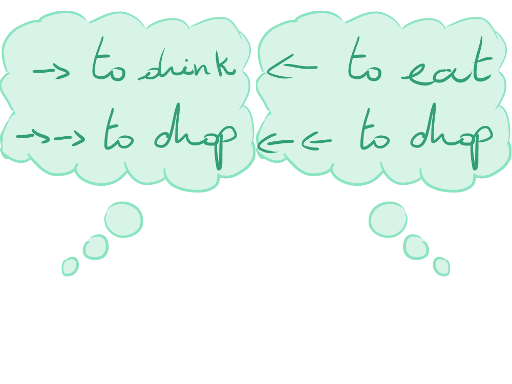 → to drink
→→ to drop
← to eat
←← to drop